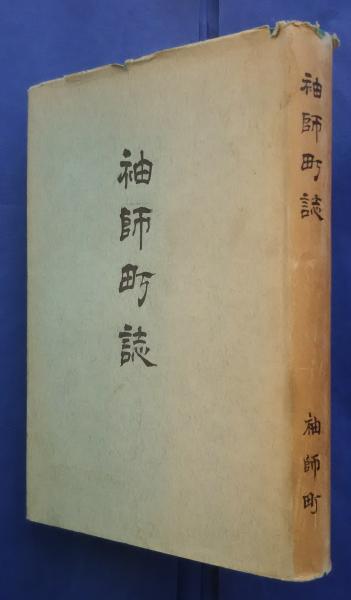 袖師町誌
袖師町誌
袖師町